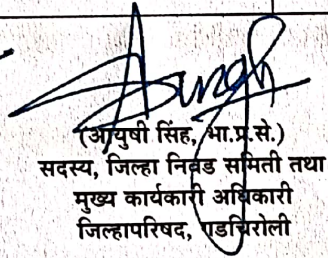 Singh
(आयुषी सिंह, भा.प्र.से.)
सदस्य, जिल्हा निवड समिती तथा
मुख्य कार्यकारी अधिकारी
जिल्हापरिषद, गडचिरोली